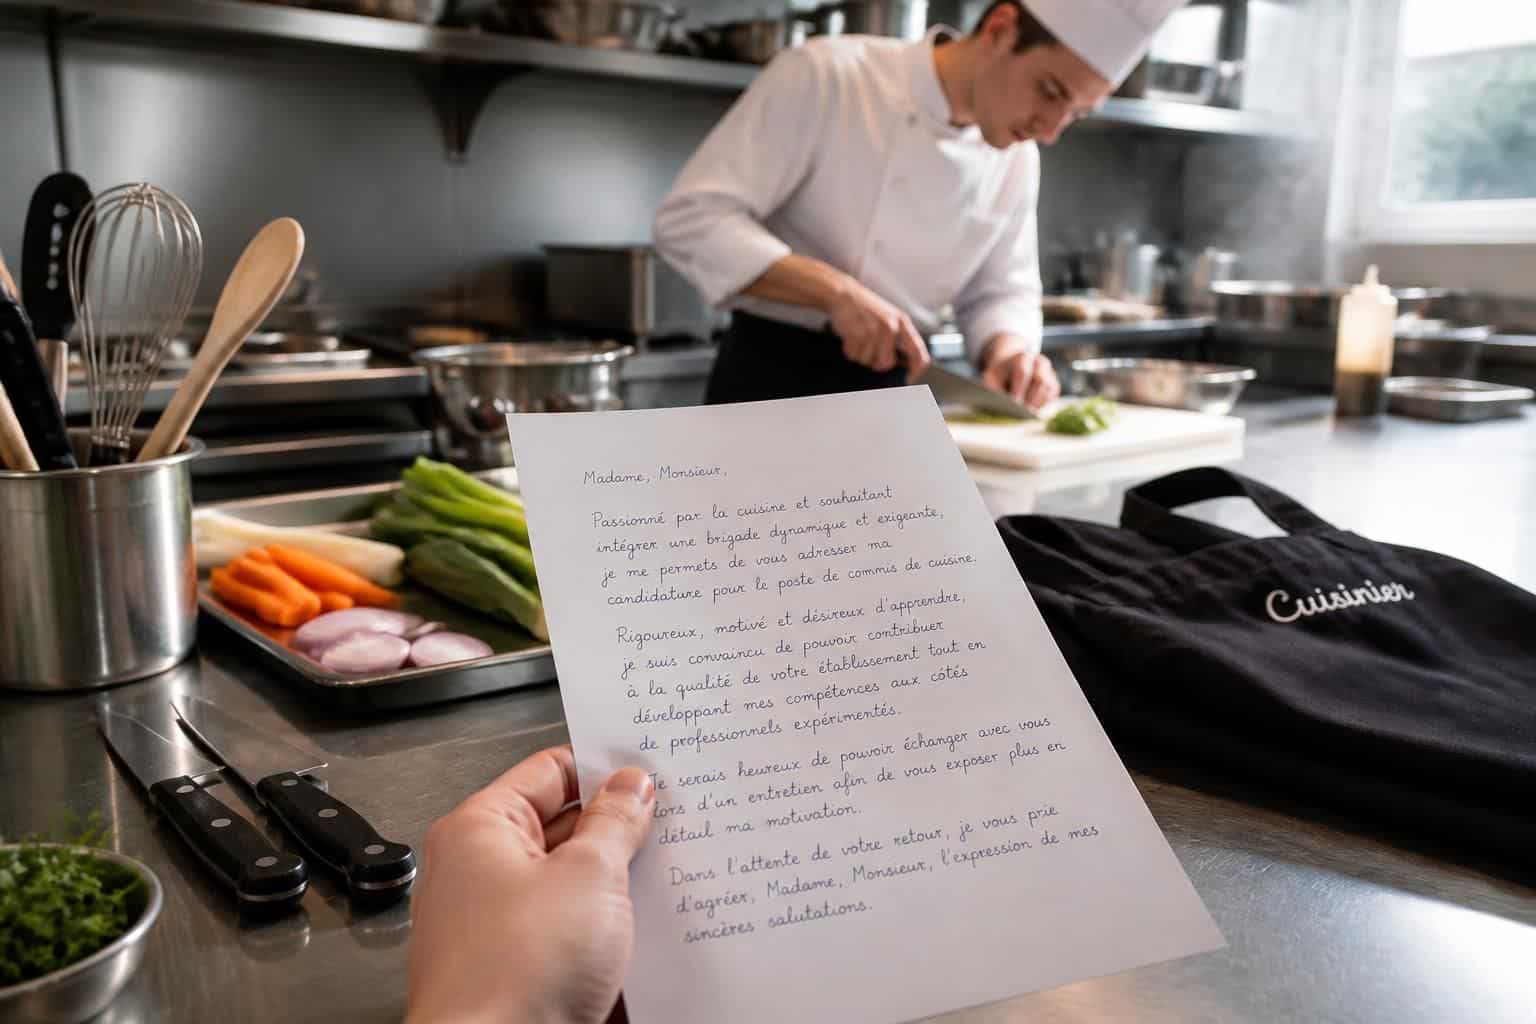 Madame, Monsieur,
Passionné par la cuisine et souhaitant
intégrer une brigade dynamique et exigeante,
je me permets de vous adresser ma
candidature pour le poste de commis de cuisine.
Rigoureux, motivé et désireux d'apprendre,
je suis convaincu de pouvoir contribuer
à la qualité de votre établissement tout en
développant mes compétences aux côtés
de professionnels expérimentés.
Je serais heureux de pouvoir échanger avec vous
lors d'un entretien afin de vous exposer plus en
détail ma motivation.
Dans l'attente de votre retour, je vous prie
d'agréer, Madame, Monsieur, l'expression de mes
sincères salutations.
Cuisinier